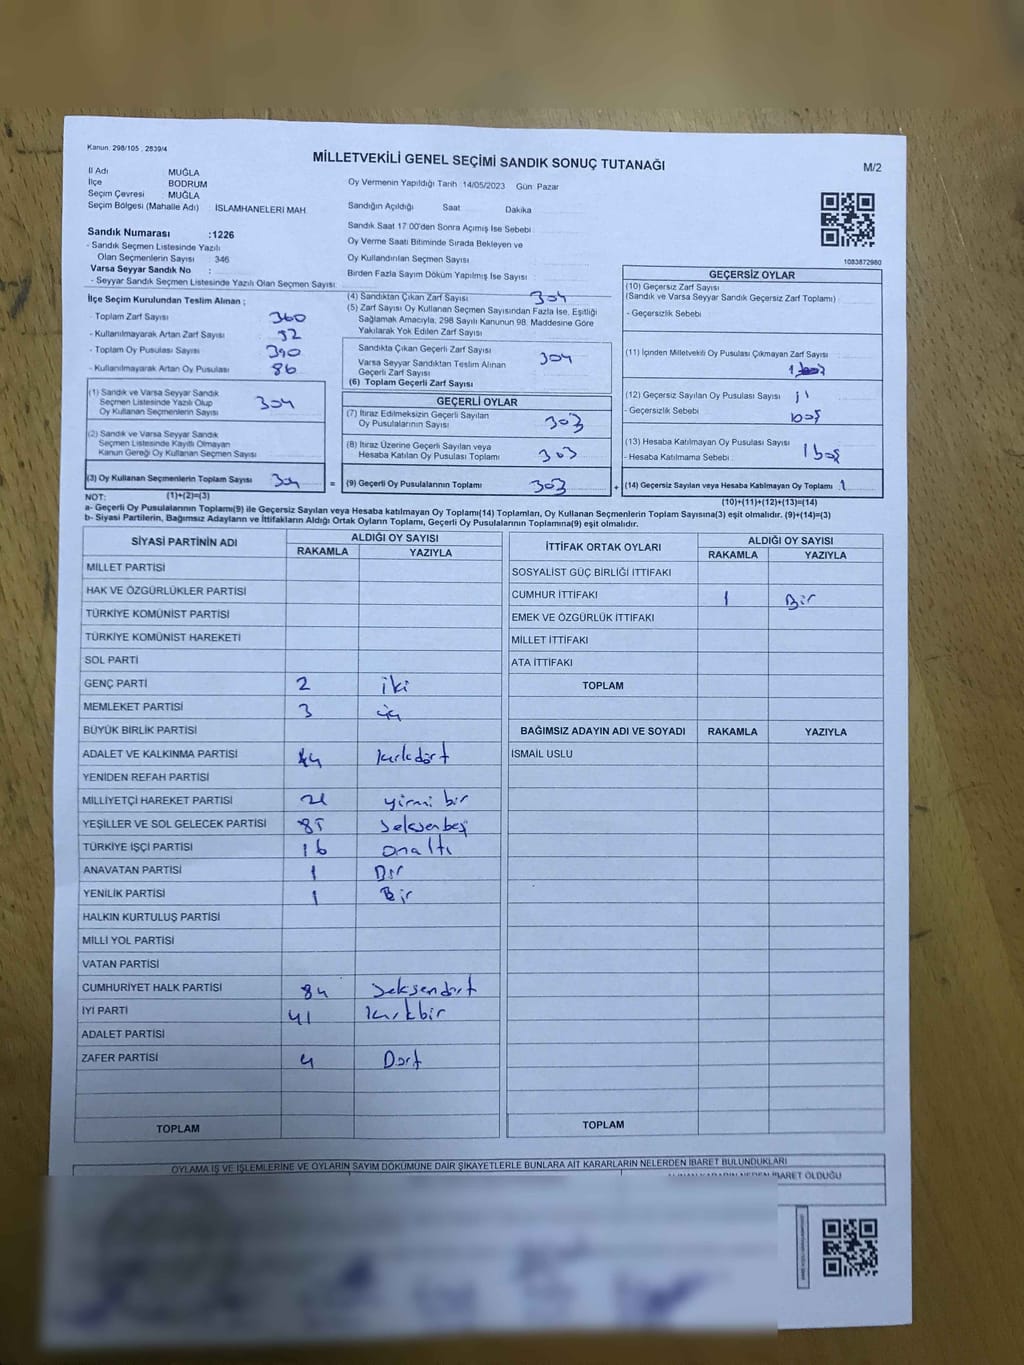 Kanun: 298/105 , 2839/4
MİLLETVEKİLİ GENEL SEÇİMİ SANDIK SONUÇ TUTANAĞI
M/2
İl Adı MUĞLA
İlçe BODRUM
Seçim Çevresi MUĞLA
Seçim Bölgesi (Mahalle Adı) : İSLAMHANELERİ MAH
Oy Vermenin Yapıldığı Tarih 14/05/2023 Gün Pazar
Sandığın Açıldığı Saat Dakika
Sandık Saat 17 00'den Sonra Açımış İse Sebebi
Oy Verme Saati Bitiminde Sırada Bekleyen ve
Oy Kullandırılan Seçmen Sayısı
Birden Fazla Sayım Döküm Yapılmış İse Sayısı
1083872980
Sandık Numarası :1226
- Sandık Seçmen Listesinde Yazılı
Olan Seçmenlerin Sayısı 346
Varsa Seyyar Sandık No :
- Seyyar Sandık Seçmen Listesinde Yazılı Olan Seçmen Sayısı
İlçe Seçim Kurulundan Teslim Alınan ;
- Toplam Zarf Sayısı 360
- Kullanılmayarak Artan Zarf Sayısı
- Toplam Oy Pusulası Sayısı 390
- Kullanılmayarak Artan Oy Pusulası 86
(1) Sandık ve Varsa Seyyar Sandık
Seçmen Listesinde Yazılı Olup
Oy Kullanan Seçmenlerin Sayısı 304
(2) Sandık ve Varsa Seyyar Sandık
Seçmen Listesinde Kayıtlı Olmayan
Kanun Gereği Oy Kullanan Seçmen Sayısı
(3) Oy Kullanan Seçmenlerin Toplam Sayısı 304 =
(4) Sandıktan Çıkan Zarf Sayısı 304
(5) Zarf Sayısı Oy Kullanan Seçmen Sayısından Fazla İse, Eşitliği
Sağlamak Amacıyla, 298 Sayılı Kanunun 98. Maddesine Göre
Yakılarak Yok Edilen Zarf Sayısı
Sandıkta Çıkan Geçerli Zarf Sayısı 304
Varsa Seyyar Sandıktan Teslim Alınan
Geçerli Zarf Sayısı
(6) Toplam Geçerli Zarf Sayısı
GEÇERLİ OYLAR
(7) İtiraz Edilmeksizin Geçerli Sayılan
Oy Pusulalarının Sayısı 303
(8) İtiraz Üzerine Geçerli Sayılan veya
Hesaba Katılan Oy Pusulası Toplamı 303
(9) Geçerli Oy Pusulalarının Toplamı 303 +
GEÇERSİZ OYLAR
(10) Geçersiz Zarf Sayısı
(Sandık ve Varsa Seyyar Sandık Geçersiz Zarf Toplamı)
- Geçersizlik Sebebi
(11) İçinden Milletvekili Oy Pusulası Çıkmayan Zarf Sayısı
1
(12) Geçersiz Sayılan Oy Pusulası Sayısı
- Geçersizlik Sebebi boş
(13) Hesaba Katılmayan Oy Pusulası Sayısı
- Hesaba Katılmama Sebebi 1 boş
(14) Geçersiz Sayılan veya Hesaba Katılmayan Oy Toplamı 1
NOT: (1)+(2)=(3)
(10)+(11)+(12)+(13)=(14)
a- Geçerli Oy Pusulalarının Toplamı(9) ile Geçersiz Sayılan veya Hesaba katılmayan Oy Toplamı(14) Toplamları, Oy Kullanan Seçmenlerin Toplam Sayısına(3) eşit olmalıdır. (9)+(14)=(3)
b- Siyasi Partilerin, Bağımsız Adayların ve İttifakların Aldığı Ortak Oyların Toplamı, Geçerli Oy Pusulalarının Toplamına(9) eşit olmalıdır.
SİYASİ PARTİNİN ADI ALDIĞI OY SAYISI
RAKAMLA YAZIYLA
MİLLET PARTİSİ
HAK VE ÖZGÜRLÜKLER PARTİSİ
TÜRKİYE KOMÜNİST PARTİSİ
TÜRKİYE KOMÜNİST HAREKETİ
SOL PARTİ
GENÇ PARTİ 2 iki
MEMLEKET PARTİSİ 3 üç
BÜYÜK BİRLİK PARTİSİ
ADALET VE KALKINMA PARTİSİ 44 kırkdört
YENİDEN REFAH PARTİSİ
MİLLİYETÇİ HAREKET PARTİSİ 21 yirmi bir
YEŞİLLER VE SOL GELECEK PARTİSİ 85 seksenbeş
TÜRKİYE İŞÇİ PARTİSİ 16 onaltı
ANAVATAN PARTİSİ 1 Bir
YENİLİK PARTİSİ 1 Bir
HALKIN KURTULUŞ PARTİSİ
MİLLİ YOL PARTİSİ
VATAN PARTİSİ
CUMHURİYET HALK PARTİSİ 84 seksendört
İYİ PARTİ 41 kırkbir
ADALET PARTİSİ
ZAFER PARTİSİ 4 Dört
TOPLAM
İTTİFAK ORTAK OYLARI ALDIĞI OY SAYISI
RAKAMLA YAZIYLA
SOSYALİST GÜÇ BİRLİĞİ İTTİFAKI
CUMHUR İTTİFAKI 1 Bir
EMEK VE ÖZGÜRLÜK İTTİFAKI
MİLLET İTTİFAKI
ATA İTTİFAKI
TOPLAM
BAĞIMSIZ ADAYIN ADI VE SOYADI RAKAMLA YAZIYLA
İSMAİL USLU
TOPLAM
OYLAMA İŞ VE İŞLEMLERİNE VE OYLARIN SAYIM DÖKÜMÜNE DAİR ŞİKAYETLERLE BUNLARA AİT KARARLARIN NELERDEN İBARET BULUNDUKLARI
İBARET OLDUĞU